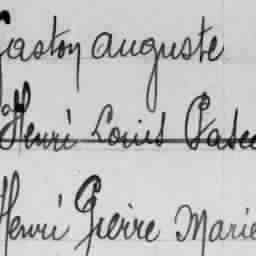 Gaston Auguste
Henri Louis
Henri Pierre Marie